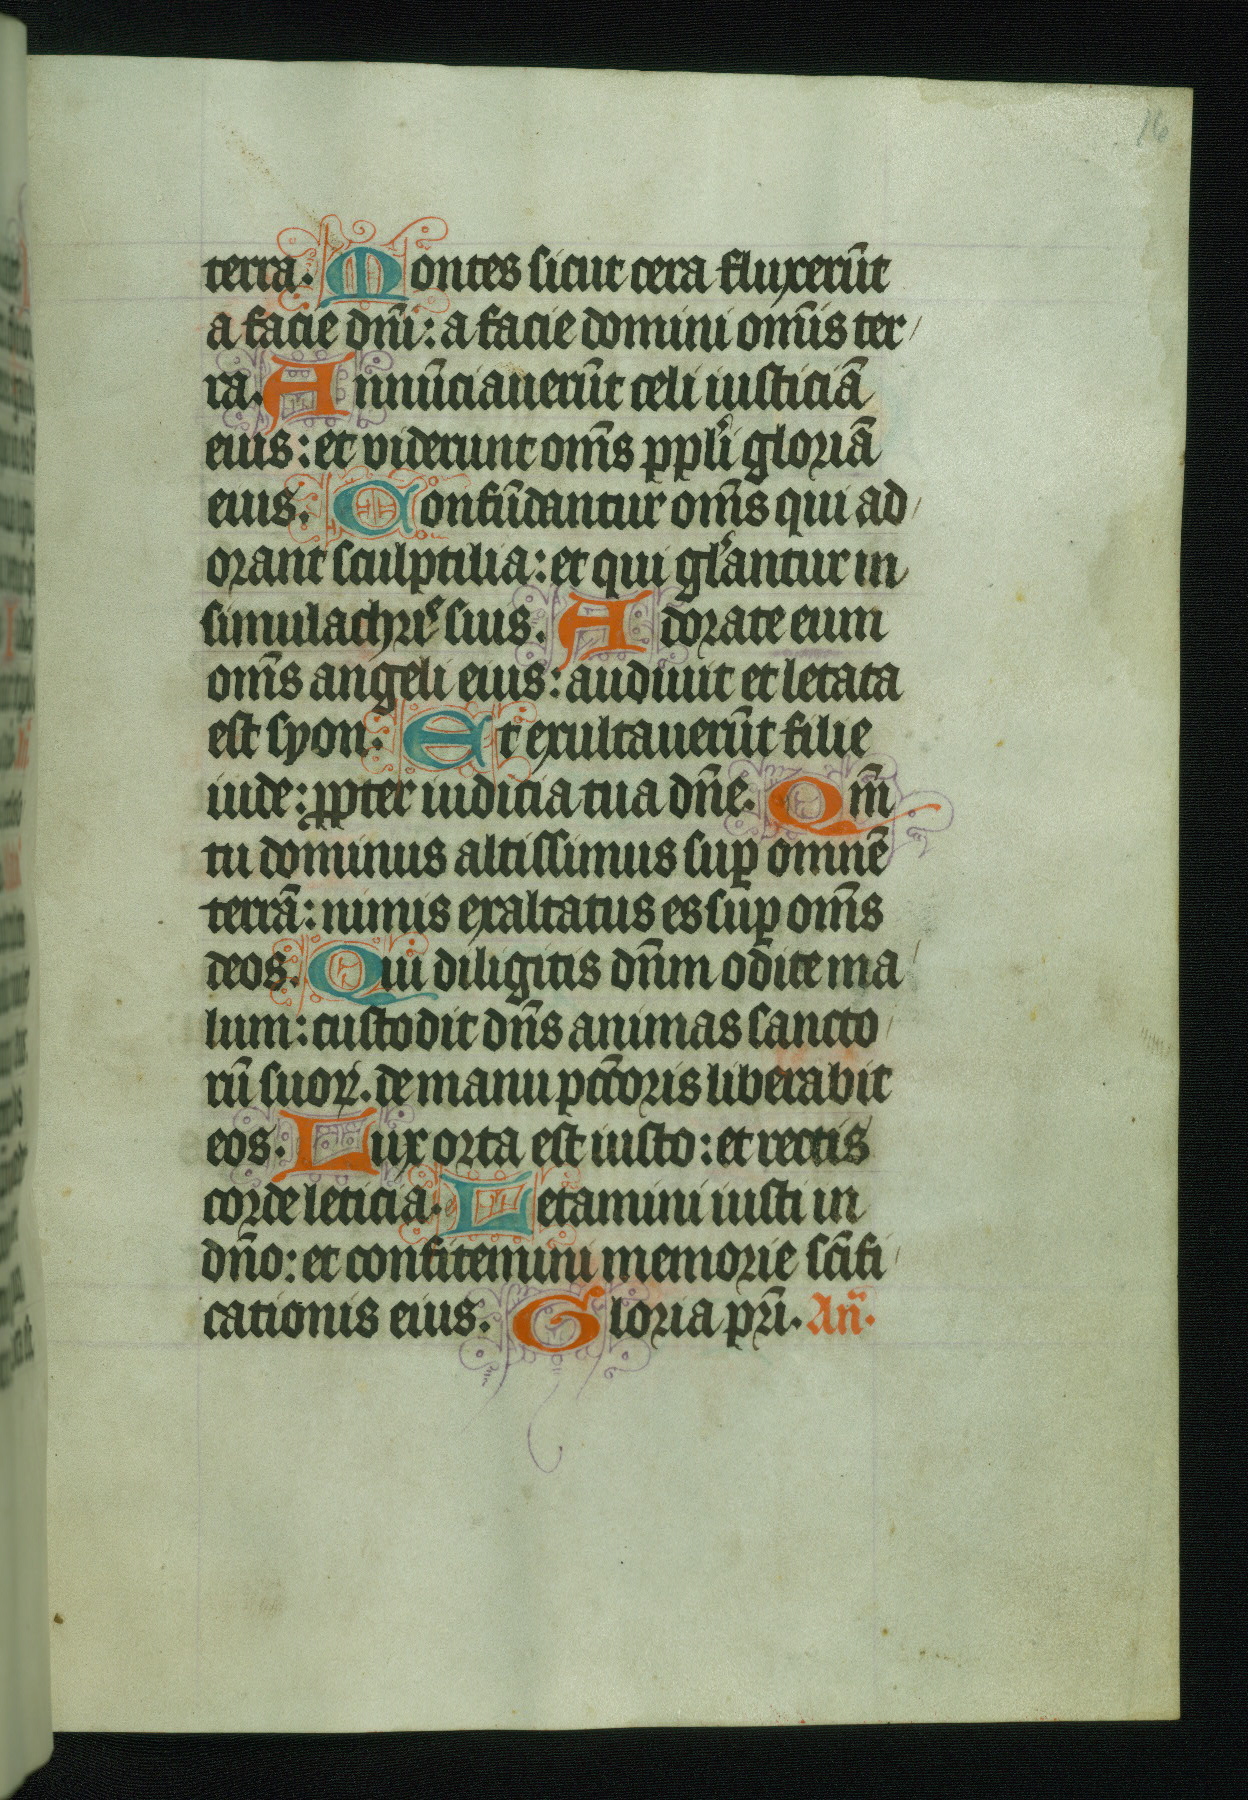 16
terra. Montes sicut cera fluxerūt
a facie dn̄i: a facie domini om̄is ter/
ra. Annūciauerūt celi iusticiā
eius: et viderunt om̄s ppl̄i gloriā
eius. Confūdantur om̄s qui ad/
orant sculptilia: et qui gl̄antur in
simulachris suis. Adorate eum
om̄s angeli eius: audiuit et letata
est syon. Et exultauerūt filie
iude: ꝓpter iudicia tua dn̄e. Qm̄
tu dominus altissimus suꝑ omnē
terrā: nimis exaltatus es suꝑ om̄s
deos. Qui diligitis dn̄m odite ma/
lum: custodit dn̄s animas sancto/
rū suoꝝ. de manu pcc̄oris liberabit
eos. Lux orta est iusto: et rectis
corde leticia. Letamini iusti in
dn̄o: et confitemini memorie sc̄ifi/
cationis eius. Gloria pr̄i. An̄.